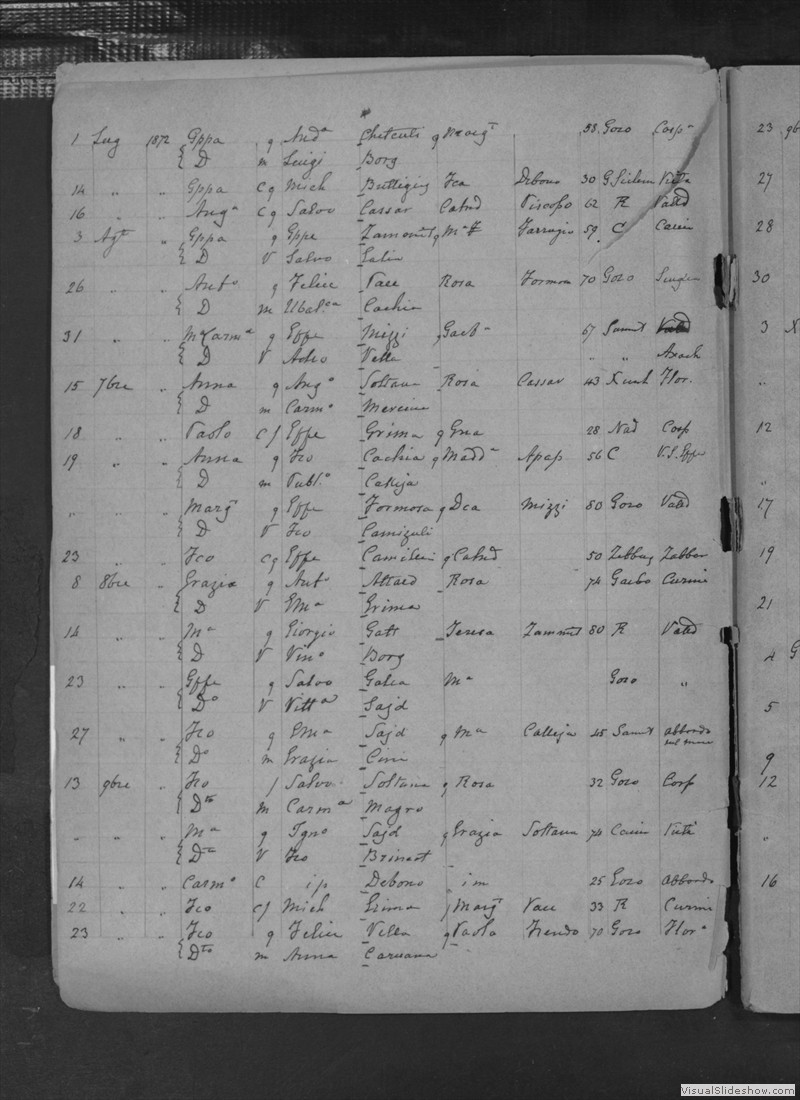 1 Lug 1872 Gppa g And.a Chetcuti g Marg.t 58 Gozo Cosp.a
{ D m Luigi Borg
14 " " Gppa cg Mich Buttigieg Fca Debono 30 G.Sielem Vitt.a
16 " " Ang.a cg Salvo Cassar Catnd Viscoso 62 R Valld
3 Ag.t " Gppa g Gppe Zammit g M.a F Farrugia 59 C Casin
{ D V Salvo Galea
26 " " Ant.o g Felice Vace Rosa Formosa 70 Gozo Senglea
{ D m Ubal.a Cachia
31 " " M Carm.a g Gppe Mizzi g Gaeb.a 67 Sannt
{ D V Vella " "
15 7bre " Anna g Ang.o Soltana Rosa Cassar 43 Xeuch Flor.
{ D m Carm.o Mercieca
18 " " Paolo cf Gppe Grima g Gna 28 Nad Cosp
19 " " Anna g Fco Cachia g Madd.a Apap 56 C V.S.Gppe
{ D m Publ.o Calleja
" " " Marg.t g Gppe Formosa g Dca Mizzi 80 Gozo Valld
{ D V Fco Camizuli
23 " " Fco cg Gppe Camilleri g Catnd 50 Zebbug Zabbar
8 8bre " Grazia g Ant.o Attard Rosa 74 Garbo Curmi
{ D V Gm.a Grima
14 " " M.a g Giorgio Gatt Teresa Zammit 80 R Valld
{ D V Vin.o Borg
23 " " Gppe g Salvo Galea M.a Gozo "
{ D.o V Vitt.a Sajd
27 " " Fco g Gm.a Sajd g M.a Calleja 45 Sannt abbordo
{ D.o m Grazia Cini
13 9bre " Fco f Salvo Soltana g Rosa 32 Gozo Cosp
{ D.to m Carm.a Magro
" " " M.a g Igno Sajd g Grazia Soltana 74 Casin Vitt.a
{ D.to V Fco Brincat
14 " " Carm.o C ip Debono im 25 Gozo abbordo
22 " " Fco cf Mich Grima f Marg.t Vace 33 R Curmi
23 " " Fco g Felice Vella g Paola Frendo 70 Gozo Flor.a
{ D.to m Anna Caruana
23 9b
27
28
30
3 N
"
12
"
17
19
21
4 G
5
9
12
"
16
VisualSlideshow.com